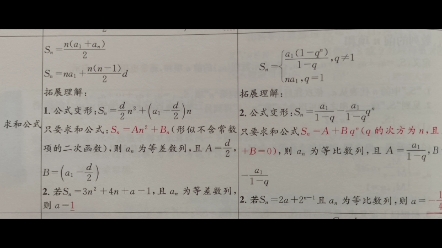 求和公式
S_n = n(a_1+a_n)/2
S_n = na_1 + n(n-1)/2 d
拓展理解:
1. 公式变形: S_n = d/2 n² + (a_1 - d/2)n
只要求和公式: S_n = An² + B_n (形似不含常数
项的二次函数), 则 a_n 为等差数列, 且 A = d/2,
B = (a_1 - d/2)
2. 若S_n = 3n² + 4n - a - 1, 且 a_n 为等差数列,
则 a = 1
S_n = { a_1(1-q^n)/1-q, q≠1
na_1, q=1
拓展理解:
2. 公式变形: S_n = a_1/1-q - a_1/1-q q^n
只要求和公式 S_n = A + Bq^n (q 的次方为 n, 且
+B=0), 则 a_n 为等比数列, 且 A = a_1/1-q, B
- a_1/1-q
2. 若S_n = 2a + 2^{n-1} 且 a_n 为等比数列, 则 a = - 1